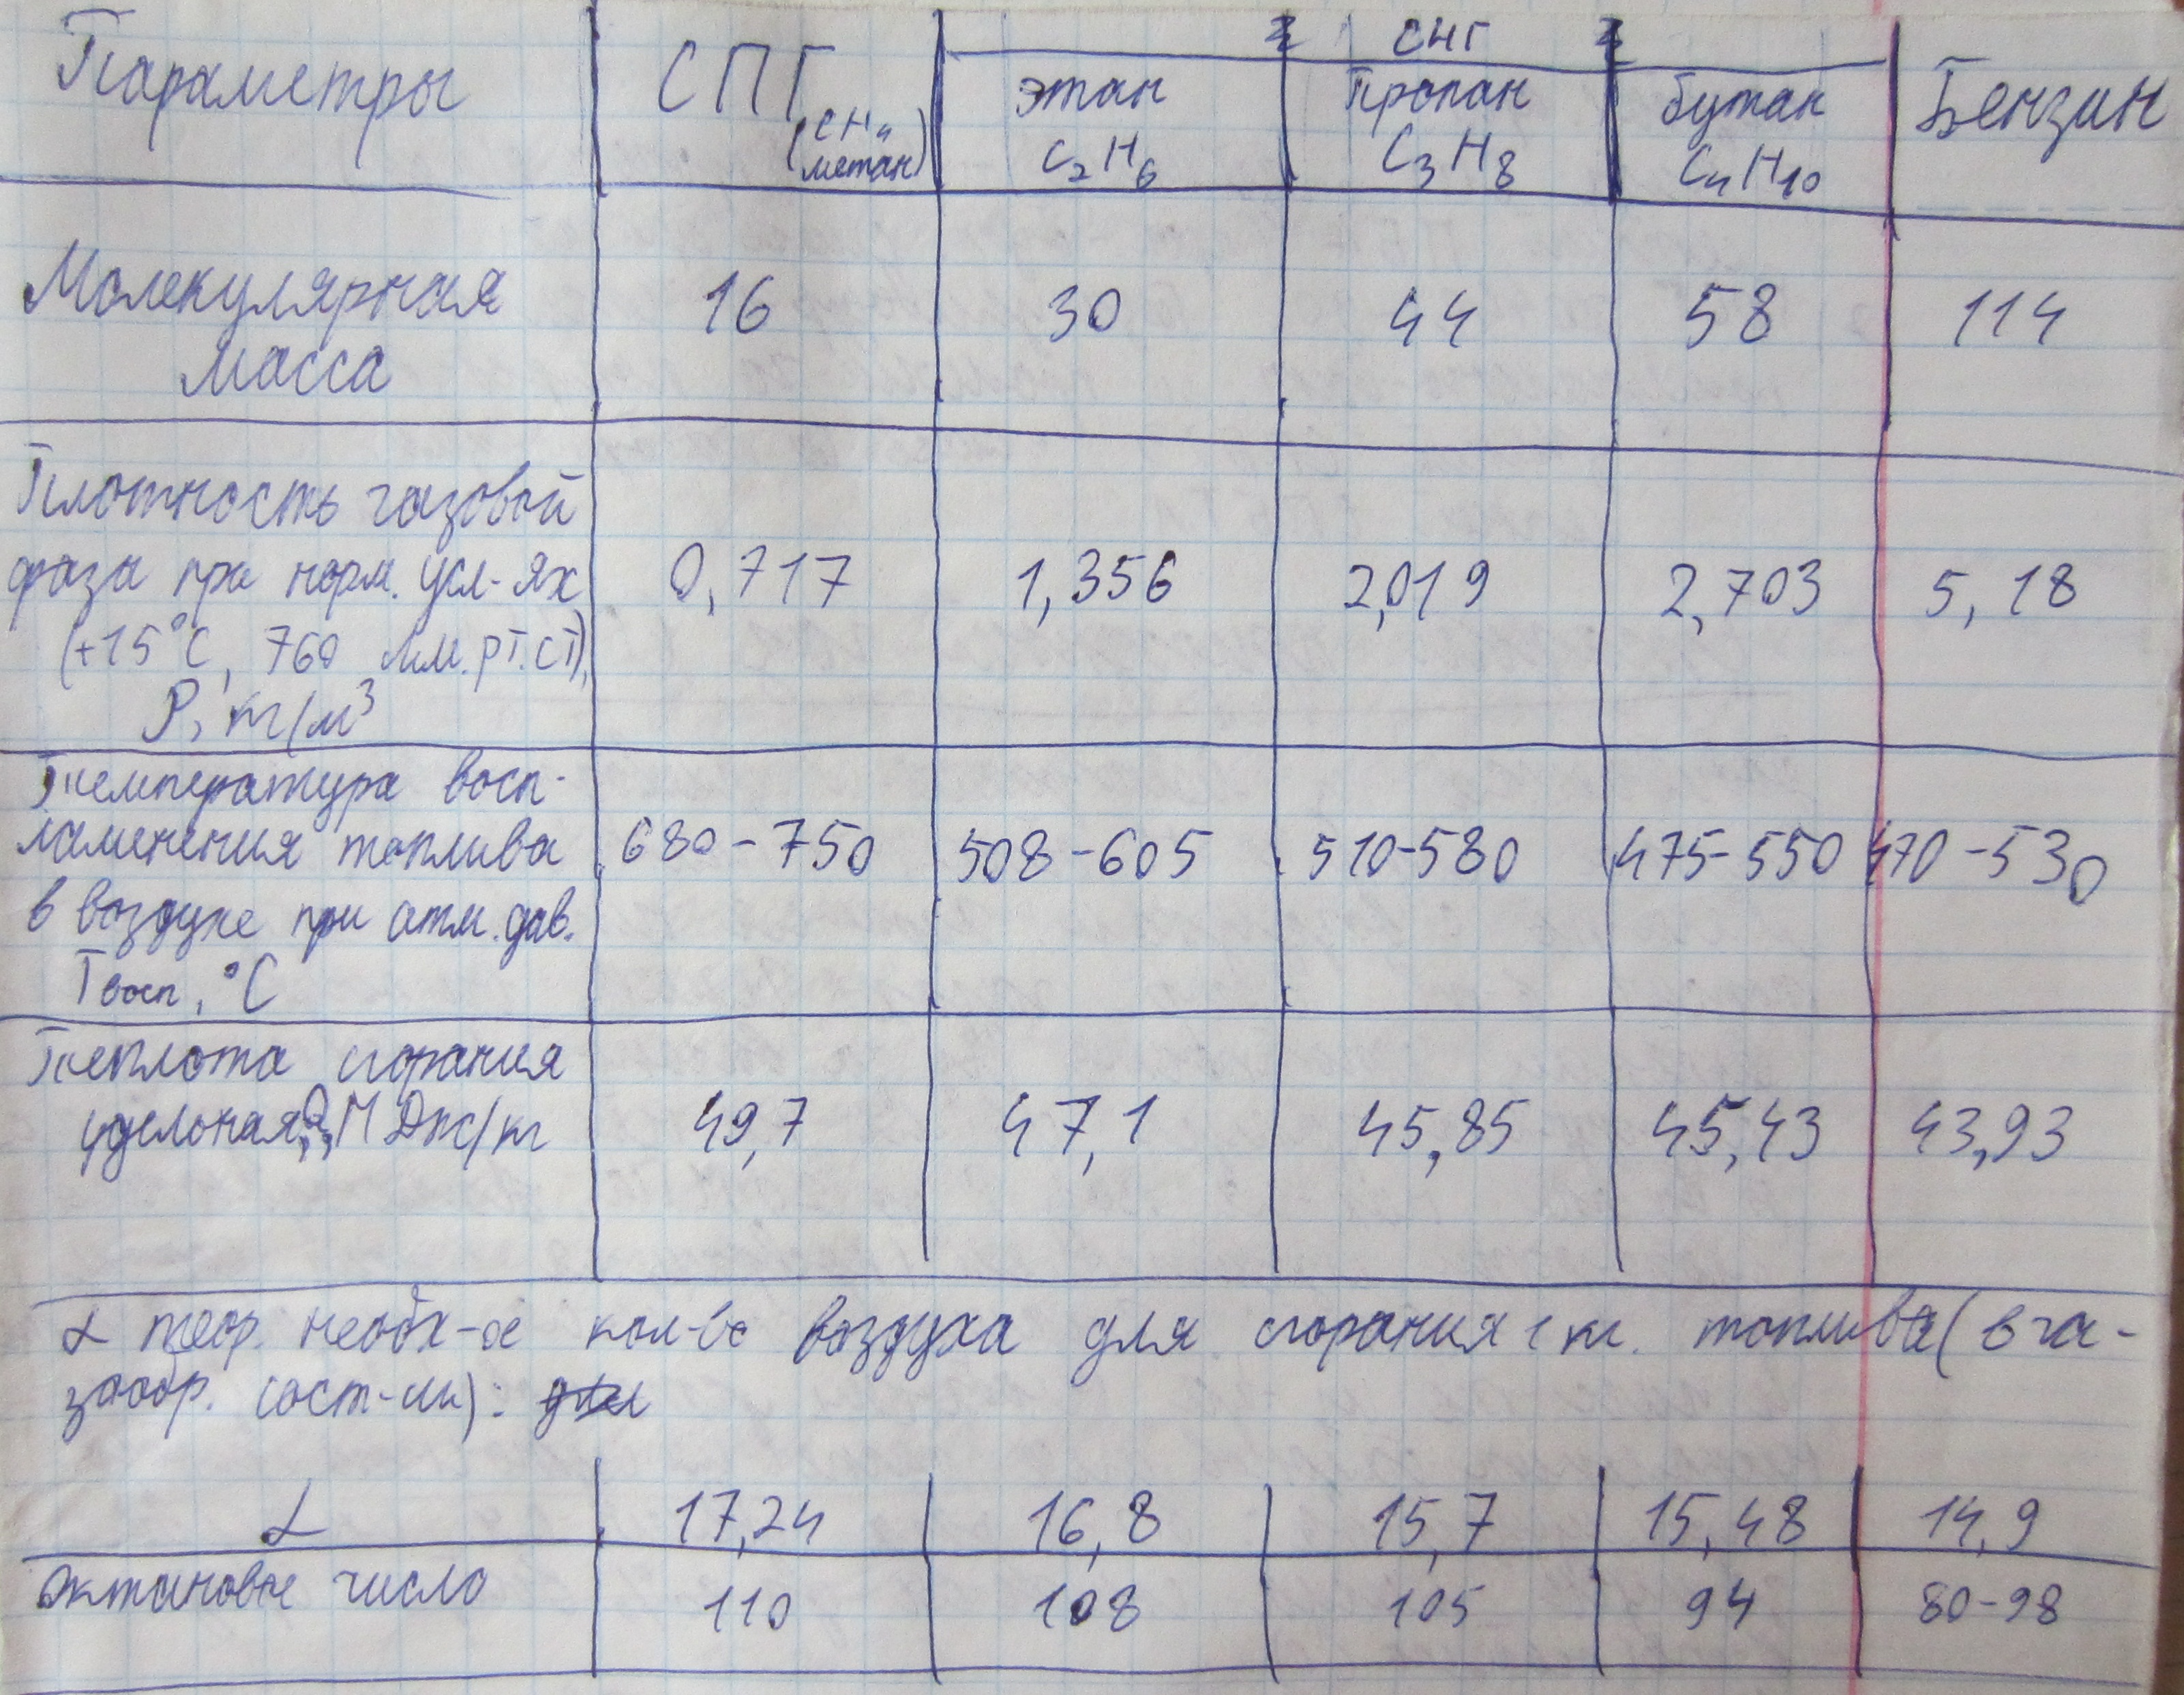 Параметры СПГ (CH4 метан) СНГ Бензин
этан Пропан бутан
C2H6 C3H8 C4H10
Молекулярная
масса 16 30 44 58 114
Плотность газовой
фазы при норм. усл-ях 0,717 1,356 2,019 2,703 5,18
(+15°C, 760 мм.рт.ст),
ρ, кг/м³
Температура восп-
ламенения топлива 680-750 508-605 510-580 475-550 470-530
в воздухе при атм. дав.
Tвосп, °C
Теплота сгорания
удельная, Q, МДж/кг 49,7 47,1 45,85 45,43 43,93
L теор. необх-ое кол-во воздуха для сгорания 1 кг. топлива (в га-
зообр. сост-ии):
L 17,24 16,8 15,7 15,48 14,9
Октановое число 110 108 105 94 80-98